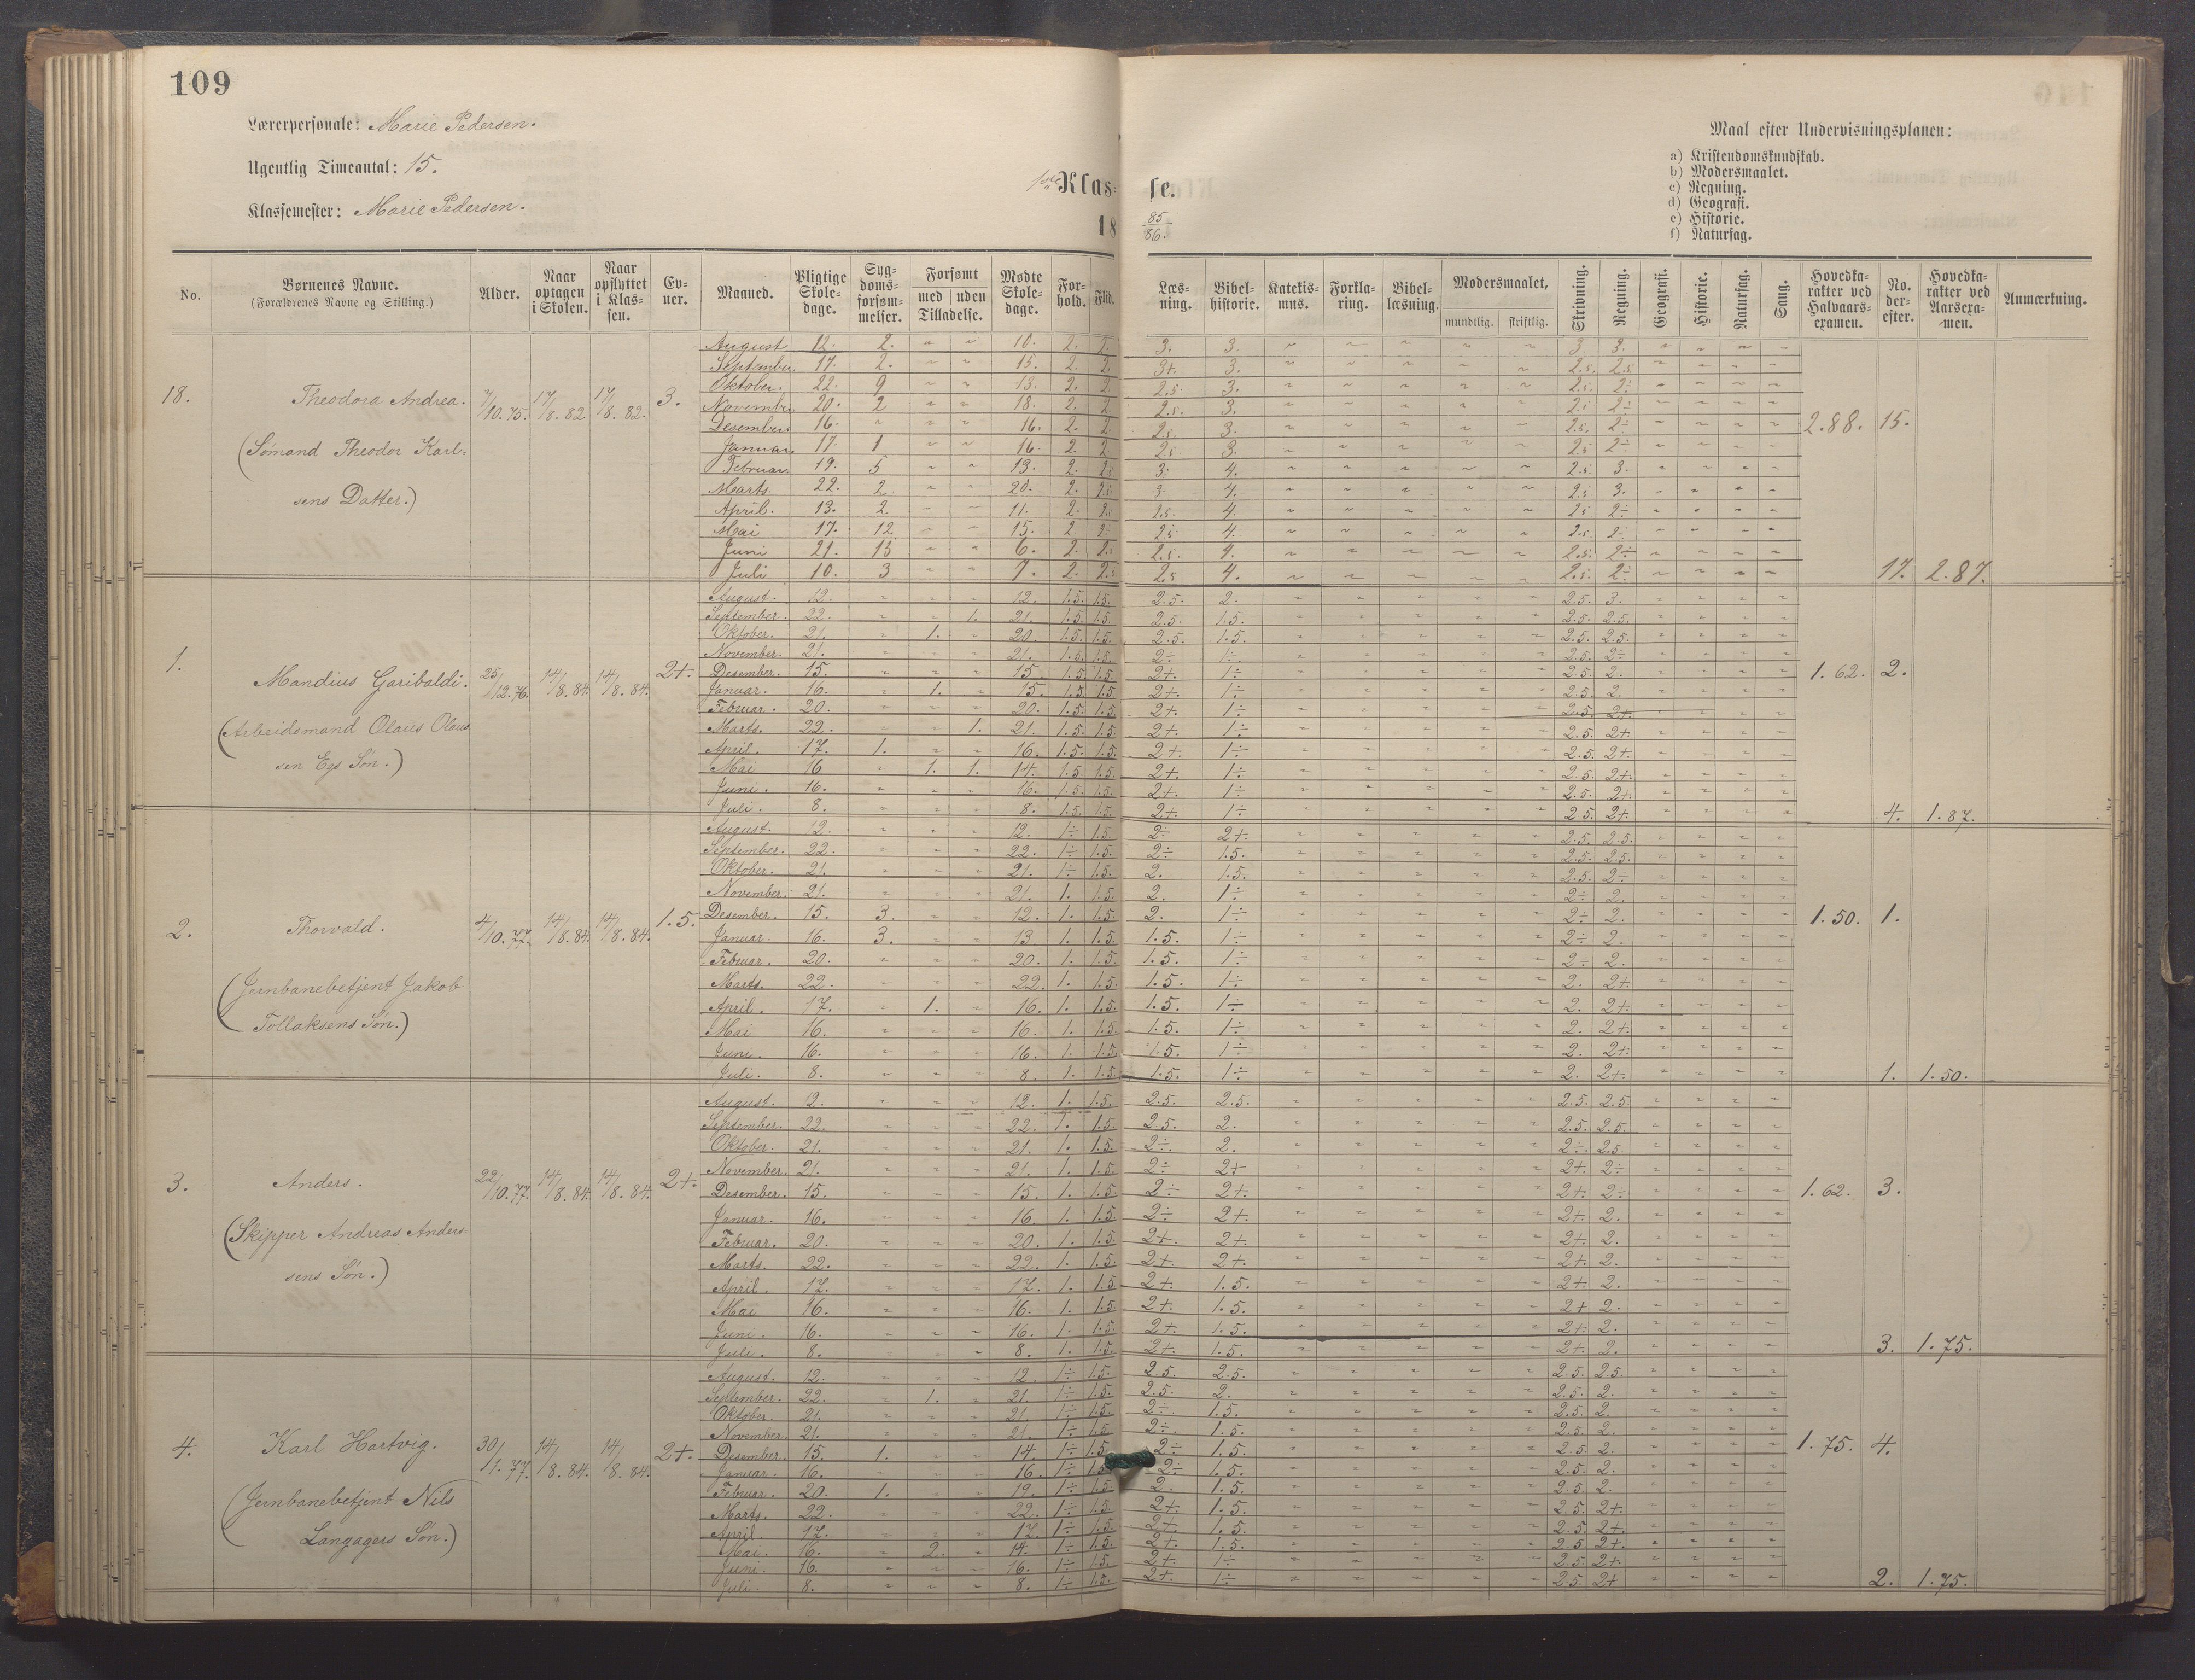 109
Lærerpersonale: Marie Pedersen.
Ugentlig Timeantal: 15.
Klassemester: Marie Pedersen.
1ste Klasse.
18 85/86.
Maal efter Undervisningsplanen:
a) Kristendomskundskab.
b) Modersmaalet.
c) Regning.
d) Geografi.
e) Historie.
f) Naturfag.
No. | Børnenes Navne. (Forældrenes Navne og Stilling.) | Alder. | Naar optagen i Skolen. | Naar opflyttet i Klassen. | Evner. | Maaned. | Pligtige Skoledage. | Sygdomsforsømmelser. | Forsømt med / uden Tilladelse. | Mødte Skoledage. | Forhold. | Flid. | Læsning. | Bibelhistorie. | Katekismus. | Forklaring. | Bibellæsning. | Modersmaalet, mundtlig. / skriftlig. | Skrivning. | Regning. | Geografi. | Historie. | Naturfag. | Sang. | Hovedkarakter ved Halvaarsexamen. | No. derefter. | Hovedkarakter ved Aarsexamen. | Anmærkning.
18. Theodora Andrea. 7/10.75. 17/8.82 17/8.82. 3.
(Sømand Theodor Karl-
sens Datter.)
August 12. 2. 10. 2. 2. 3. 3. 3. 3.
September 17. 2. 15. 2. 2. 3+ 3. 2.5. 2.5
Oktober. 22. 9 13. 2. 2. 2.5 3. 2.5. 2÷
November 20. 2 18. 2. 2. 2.5. 3. 2.5 2÷
Desember 16. 16. 2. 2. 2.5. 3. 2.5. 2÷
2.88. 15.
Januar. 17. 1 16. 2. 2 2.5 3. 2.5 2÷
Februar. 19. 5 13. 2. 2.5 3. 4. 2.5 3.
Marts. 22. 2. 20. 2. 2.5 3. 4. 2.5 3.
April. 13. 2 11. 2. 2.5 2.5. 4. 2.5 2÷
Mai 17. 12 15. 2 2÷ 2.5 4. 2.5 2÷
Juni 21. 15 6. 2. 2.5 2.5. 4. 2.5. 2÷
Juli 10. 3 7. 2. 2.5 2.5 4. 2.5. 2÷
17. 2.87.
1. Mandius Garibaldi. 25/12.76. 14/8.84. 14/8.84. 2+.
(Arbeidsmand Olaus Olaus
sen Egs Søn.)
August. 12. 12. 1.5. 1.5. 2.5. 2. 2.5. 3.
September. 22. 1. 21. 1.5. 1.5. 2.5. 1.5. 2.5. 2.5.
Oktober. 21. 1. 20. 1.5. 1.5. 2.5. 1.5. 2.5. 2.5.
November. 21. 21. 1.5. 1.5. 2÷ 1÷ 2.5. 2÷
Desember. 15. 15. 1.5. 1.5 2+ 1÷ 2.5. 2.
1.62. 2.
Januar. 16. 1. 15. 1.5. 1.5 2+. 1÷ 2.5. 2.
Februar. 20. 20. 1.5. 1.5. 2+. 1÷ 2.5. 2+.
Marts. 22. 1. 21. 1.5. 1.5 2+. 1÷ 2.5. 2+.
April. 17. 1. 16. 1.5. 1.5. 2+. 1÷ 2.5. 2+.
Mai 16 1. 1. 14. 1.5. 1.5. 2+. 1÷ 2.5. 2+.
Juni. 16. 16. 1.5. 1.5. 2+. 1÷ 2.5. 2+.
Juli. 8. 8. 1.5. 1.5. 2+. 1÷ 2.5. 2+.
4. 1.87.
2. Thorvald. 4/10.77. 14/8.84. 14/8.84. 1.5.
(Jernbanebetjent Jakob
Tollaksens Søn.)
August. 12. 12. 1÷ 1.5. 2÷ 2+. 2.5. 2.5.
September. 22. 22. 1÷ 1.5. 2÷ 1.5. 2.5. 2.5.
Oktober. 21. 21. 1÷ 1.5. 2. 1.5. 2.5. 2÷
November. 21. 21. 1. 1.5. 2. 1÷ 2÷ 2.
Desember. 15. 3. 12. 1. 1.5 2. 1÷ 2÷ 2.
1.50. 1.
Januar. 16. 3. 13. 1. 1.5 1.5. 1÷ 2÷ 2.
Februar. 20. 20. 1. 1.5. 1.5. 1÷ 2÷ 2.
Marts. 22. 22. 1. 1.5. 1.5. 1÷ 2. 2+.
April. 17. 1. 16. 1. 1.5. 1.5. 1÷ 2. 2+.
Mai 16. 16. 1. 1.5. 1.5. 1÷ 2. 2+.
Juni. 16. 16. 1. 1.5. 1.5. 1÷ 2. 2+.
Juli. 8. 8. 1. 1.5. 1.5. 1÷ 2. 2+.
1. 1.50.
3. Anders. 22/10.77. 14/8.84. 14/8.84. 2+.
(Skipper Andreas Anders-
sens Søn.)
August. 12. 12. 1. 1.5. 2.5. 2.5. 2.5. 2.5.
September. 22. 22. 1. 1.5. 2.5. 2. 2.5. 2.5.
Oktober. 21. 21. 1. 1.5. 2÷ 2. 2÷ 2.5.
November. 21. 21. 1. 1.5. 2÷ 2+ 2+. 2÷
Desember. 15. 15. 1. 1.5. 2÷ 2+. 2+. 2÷
1.62. 3.
Januar. 16. 16. 1. 1.5. 2÷ 2+. 2+. 2.
Februar. 20. 20. 1. 1.5. 2+. 2+. 2+. 2.
Marts. 22. 22. 1. 1.5. 2+. 2+. 2+. 2.
April. 17. 17. 1. 1.5. 2+. 1.5. 2+. 2.
Mai 16. 16. 1. 1.5. 2+. 1.5. 2+ 2.
Juni. 16. 16. 1. 1.5. 2+. 1.5. 2+. 2.
Juli. 8. 8. 1. 1.5. 2+. 1.5. 2+. 2.
3. 1.75.
4. Karl Hartvig. 30/1.77. 14/8.84. 14/8.84. 2+.
(Jernbanebetjent Nils
Langagers Søn.)
August. 12. 12. 1÷ 1.5. 2.5. 2.5. 2.5. 2.5.
September. 22. 1. 21. 1÷ 1.5. 2.5. 2. 2.5. 2.
Oktober. 21. 21. 1÷ 1.5. 2÷ 1.5. 2.5. 2.
November. 21. 21. 1÷ 1.5. 2÷ 1.5. 2.5. 2.
Desember. 15. 1. 14. 1÷ 1.5. 2÷ 1.5. 2.5. 2.
1.75. 4.
Januar. 16. 16. 1÷ 1.5 2÷ 1.5. 2.5. 2.
Februar. 20. 1. 19. 1÷ 1.5. 2. 1.5. 2.5. 2.
Marts. 22. 22. 1÷ 1.5. 2+. 1.5. 2.5. 2+.
April. 17. 17. 1÷ 1.5. 2+. 1.5. 2.5. 2+.
Mai. 16. 2. 14. 1÷ 1.5. 2+. 1.5. 2.5 2+.
Juni. 16. 16. 1÷ 1.5. 2+. 1÷ 2.5. 2+.
Juli. 8. 8. 1÷ 1.5. 2+. 1÷ 2.5. 2+
2. 1.75.